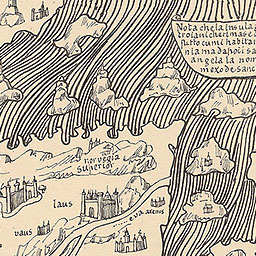 Nota che la Insula
troianicherimase
tutto cumi habitai
nia ma dapoi sa
angela la nom
mexo de sanc
norvegia
superior
iaus
eva arenus
vaus